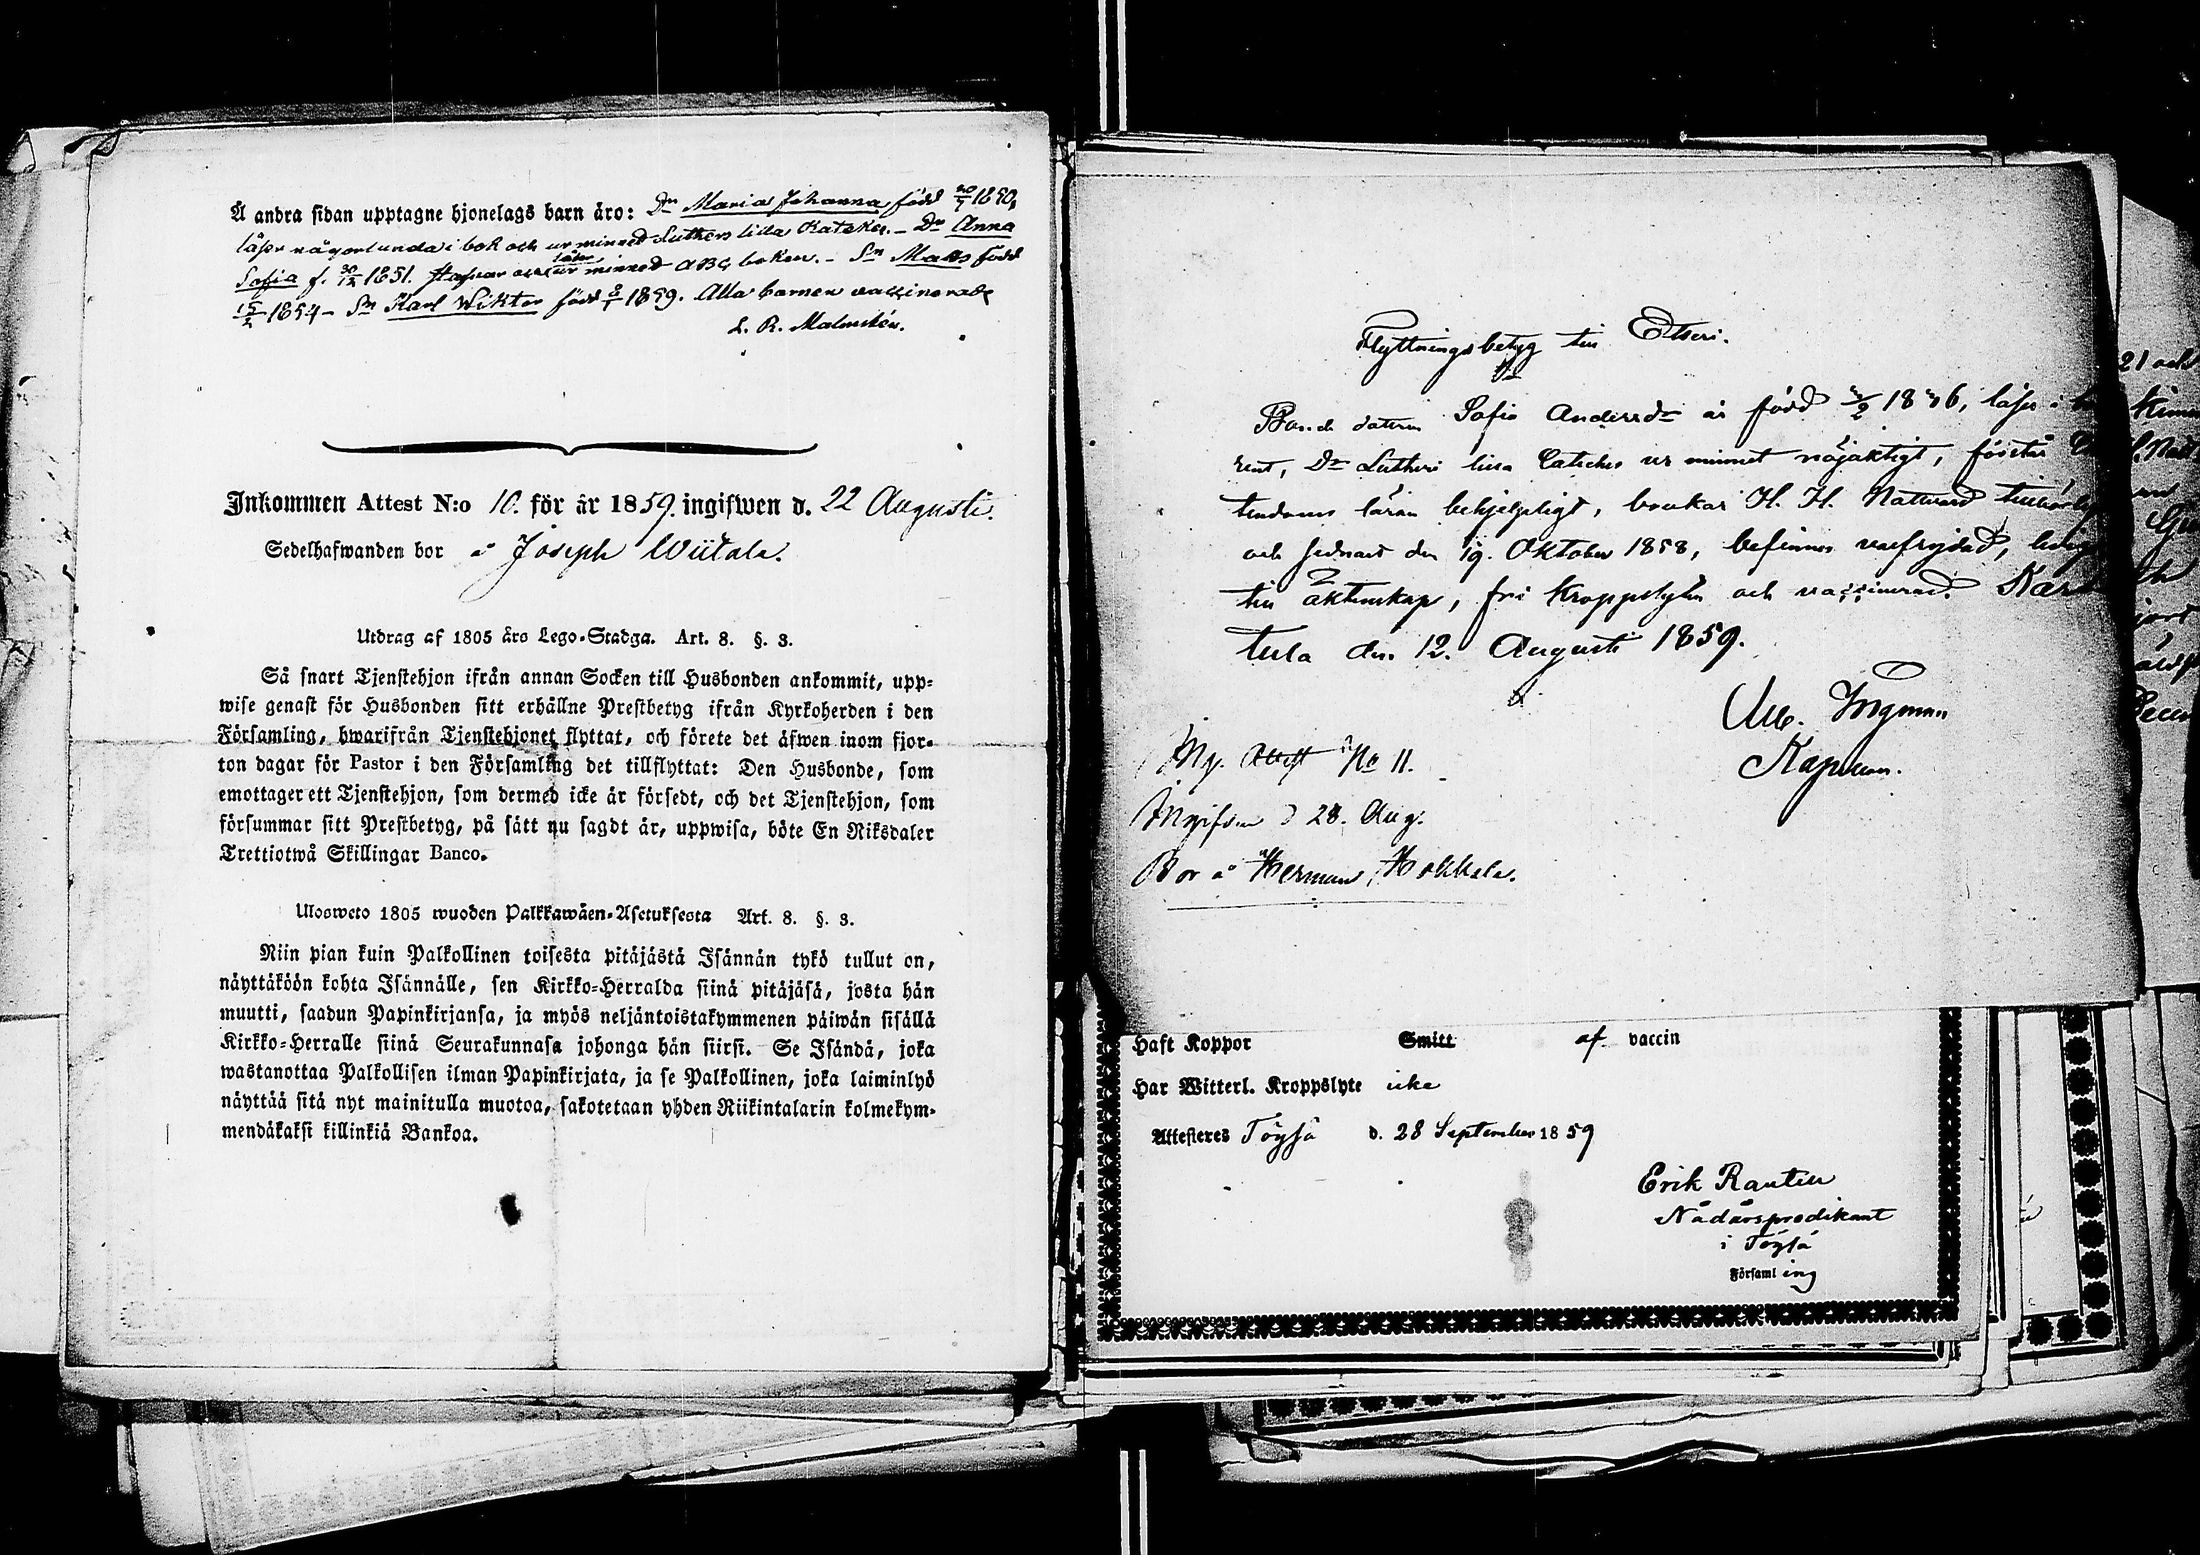 Å andra sidan upptagne hjonelags barn äro: Dn Maria Johanna född 20/7 1850,
läser någorlunda i bok och ur minnet Luthers lilla Katekes. - Dn Anna
Sofia f. 30/12 1851. stafvar och läser ur minnet ABC boken. - Sn Matts född
15/2 1854 - Sn Karl Wiktor född 8/1 1859. Alla barnen vaccinerade
L. R. Malmstén.
Inkommen Attest N:o 10. för år 1859. ingifwen d. 22 Augusti.
Sedelhafwanden bor å Joseph Wiitala.
Utdrag af 1805 års Lego-Stadga. Art. 8. §. 3.
Så snart Tjenstehjon ifrån annan Socken till Husbonden ankommit, upp-
wise genast för Husbonden sitt erhållne Prestbetyg ifrån Kyrkoherden i den
Församling, hwarifrån Tjenstehjonet flyttat, och förete det äfwen inom fjor-
ton dagar för Pastor i den Församling det tillflyttat: Den Husbonde, som
emottager ett Tjenstehjon, som dermed icke är försedt, och det Tjenstehjon, som
försummar sitt Prestbetyg, på sätt nu sagdt är, uppwisa, böte En Riksdaler
Trettiotwå Skillingar Banco.
Ulosweto 1805 wuoden Palkkawäen-Asetuksesta Art. 8. §. 3.
Niin pian kuin Palkollinen toisesta pitäjästä Isännän tykö tullut on,
näyttäköön kohta Isännälle, sen Kirkko-Herralda siinä pitäjäsä, josta hän
muutti, saadun Papinkirjansa, ja myös neljäntoistakymmenen päiwän sisällä
Kirkko-Herralle siinä Seurakunnasa johonga hän siirsi. Se Isändä, joka
wastanottaa Palkollisen ilman Papinkirjata, ja se Palkollinen, joka laiminlyö
näyttää sitä nyt mainitulla muotoa, sakotetaan yhden Riikintalarin kolmekym-
mendäkaksi killinkiä Bankoa.
Flyttningsbetyg till Etseri.
Bonde dottern Sofia Andersdr är född 1846, läser i
rent, Dr Lutheri lilla Cateches ur minnet nöjaktigt, förstår
tendoms läran behjelpligt, brukar H. H. Nattvard
och sednast den 19. Oktober 1858, befinnes välfrejdad, ledig
till äktenskap, fri Kroppslyten och vaccinerad. Kars
tula den 12. Augusti 1859.
Alb. Ingman
Kaplan.
Ing. Attest No 11.
Ingifven d 28. Aug.
Bor å Herman Hokkala.
Haft Koppor Smitt af vaccin
Har Witterl. Kroppslyte icke
Attesteres Töysä d. 28 September 1859
Erik Rantin
Nådårspredikant
i Töysä
Församling